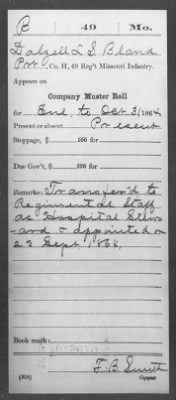 B 49 Mo.
Dalzell L. S. Bland
Pvt., Co. H, 49 Reg't Missouri Infantry.
Appears on
Company Muster Roll
for Enr, to Oct 31, 1864.
Present or absent, Present
Stoppage, $ 100 for
Due Gov't, $ 100 for
Remarks: Transfer'd to
Regimental Staff
as Hospital Stew-
ard & appointed on
23 Sept 1864.
Book mark:
F. B. Smith
Copyist.